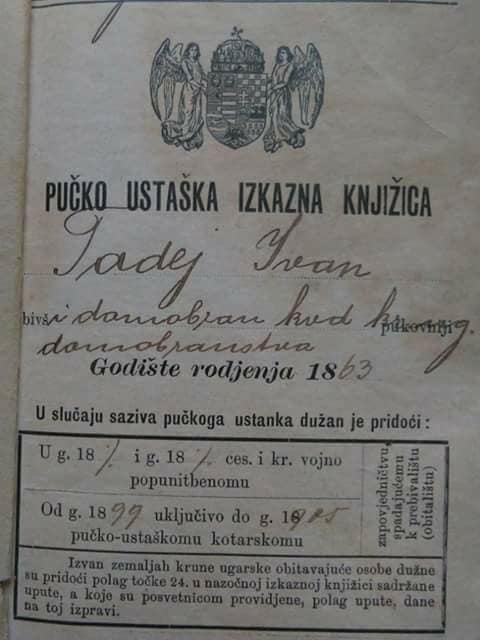 PUČKO USTAŠKA IZKAZNA KNJIŽICA
Tadej Ivan
bivši domobran kod kr. ug.
pukovniji
domobranstva
Godište rodjenja 1863
U slučaju saziva pučkoga ustanka dužan je pridoći:
U g. 18 % i g. 18 % ces. i kr. vojno
popunitbenomu
Od g. 1899 uključivo do g. 1905
pučko-ustaškomu kotarskomu
zapovjedničtvu
spadajućemu
k prebivalištu
(obitalištu)
Izvan zemaljah krune ugarske obitavajuće osobe dužne
su pridoći polag točke 24. u nazočnoj izkaznoj knjižici sadržane
upute, a koje su posvetnicom providjene, polag upute, dane
na toj izpravi.